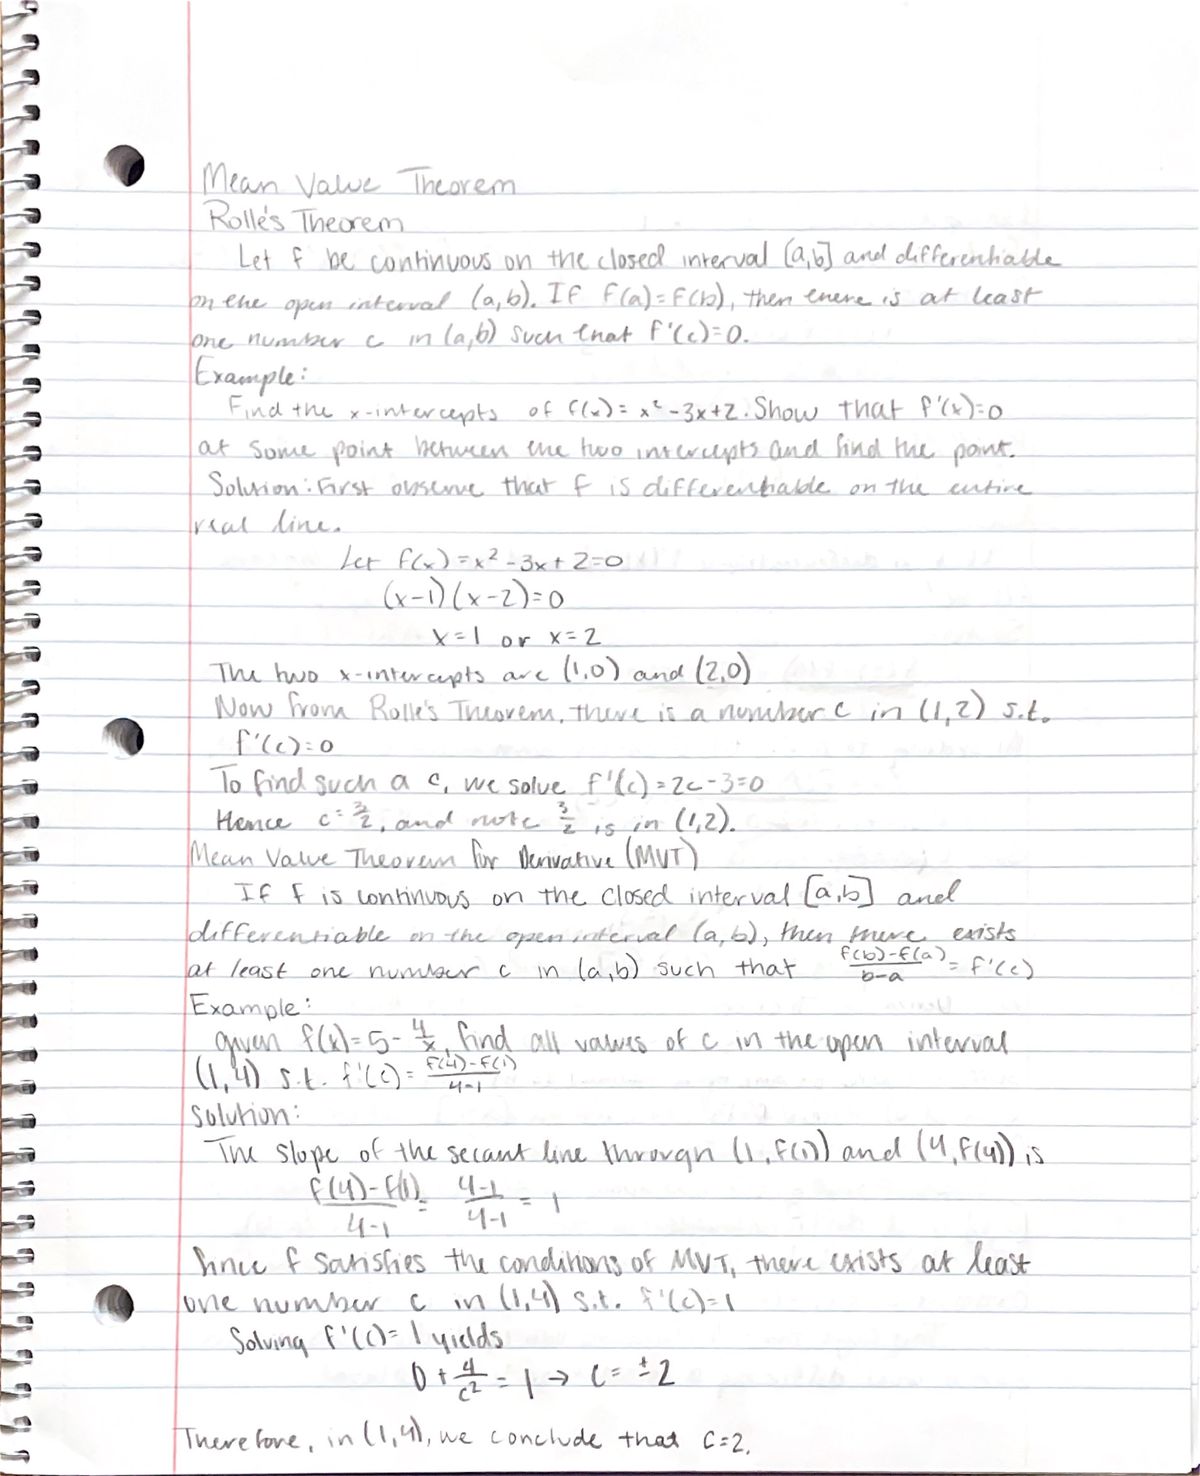 Mean Value Theorem
Rolle's Theorem
Let f be continuous on the closed interval [a,b] and differentiable
on the open interval (a,b). If f(a)=f(b), then there is at least
one number c in (a,b) such that f'(c)=0.
Example:
Find the x-intercepts of f(x)=x²-3x+2. Show that f'(x)=0
at some point between the two intercepts and find the point.
Solution: First observe that f is differentiable on the entire
real line.
Let f(x)=x²-3x+2=0
(x-1)(x-2)=0
x=1 or x=2
The two x-intercepts are (1,0) and (2,0)
Now from Rolle's Theorem, there is a number c in (1,2) s.t.
f'(c)=0
To find such a c, we solve f'(c)=2c-3=0
Hence c=3/2, and note 3/2 is in (1,2).
Mean Value Theorem for Derivative (MVT)
If f is continuous on the closed interval [a,b] and
differentiable on the open interval (a,b), then there exists
at least one number c in (a,b) such that (f(b)-f(a))/(b-a) = f'(c)
Example:
given f(x)=5-4/x, find all values of c in the open interval
(1,4) s.t. f'(c)=(f(4)-f(1))/(4-1)
Solution:
The slope of the secant line through (1,f(1)) and (4,f(4)) is
(f(4)-f(1))/(4-1) = (4-1)/(4-1) = 1
Since f satisfies the conditions of MVT, there exists at least
one number c in (1,4) s.t. f'(c)=1
Solving f'(c)=1 yields
0+4/c²=1→c=±2
Therefore, in (1,4), we conclude that c=2.